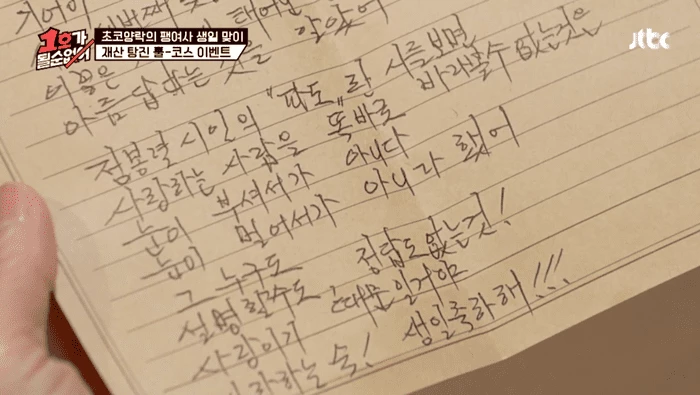 1호가 될순없어
초코양락의 팽여사 생일 맞이
재산 탕진 풀-코스 이벤트
jtbc
태어난
이 꽃은
아름답다는 것을 알았어
정봉렬 시인의 "파도"란 시를보면
사랑하는 사람을 똑바로 바라볼수 없는것은
눈이 부셔서가 아니다
눈이 멀어서가 아니라 했어
그 누구도
설명할수도, 정답도 없는것!
사랑이기 때문일거야
하는 숙! 생일축하해!!!